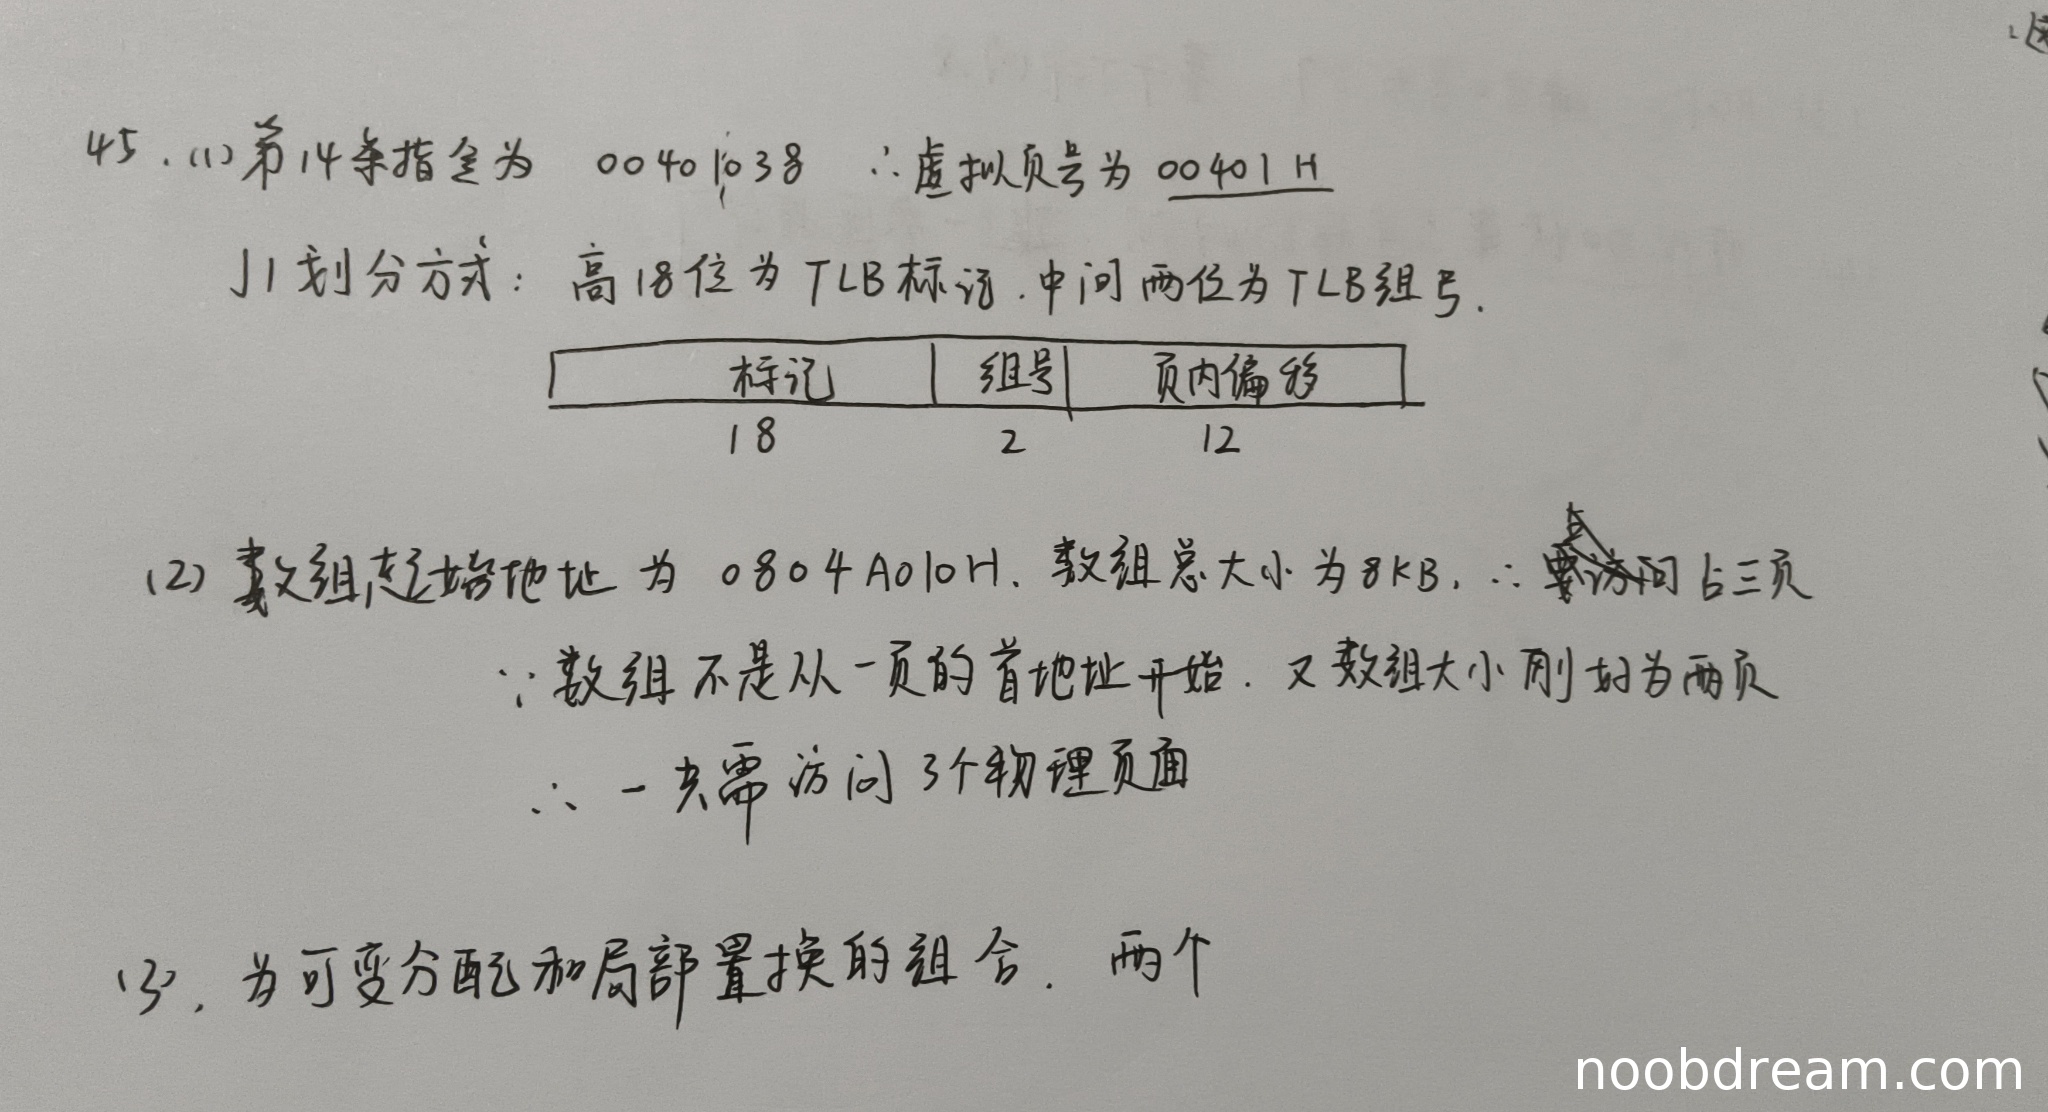 45.(1)第14条指令为 00401038 ∴虚拟页号为 00401H
J1划分方式：高18位为TLB标记.中间两位为TLB组号.
标记 组号 页内偏移
18 2 12
(2)数组起始地址为 0804A010H.数组总大小为8KB.∴占三页
∵数组不是从一页的首地址开始.又数组大小刚好为两页
∴一共需访问3个物理页面
(3).为可变分配和局部置换的组合.两个
noobdream.com